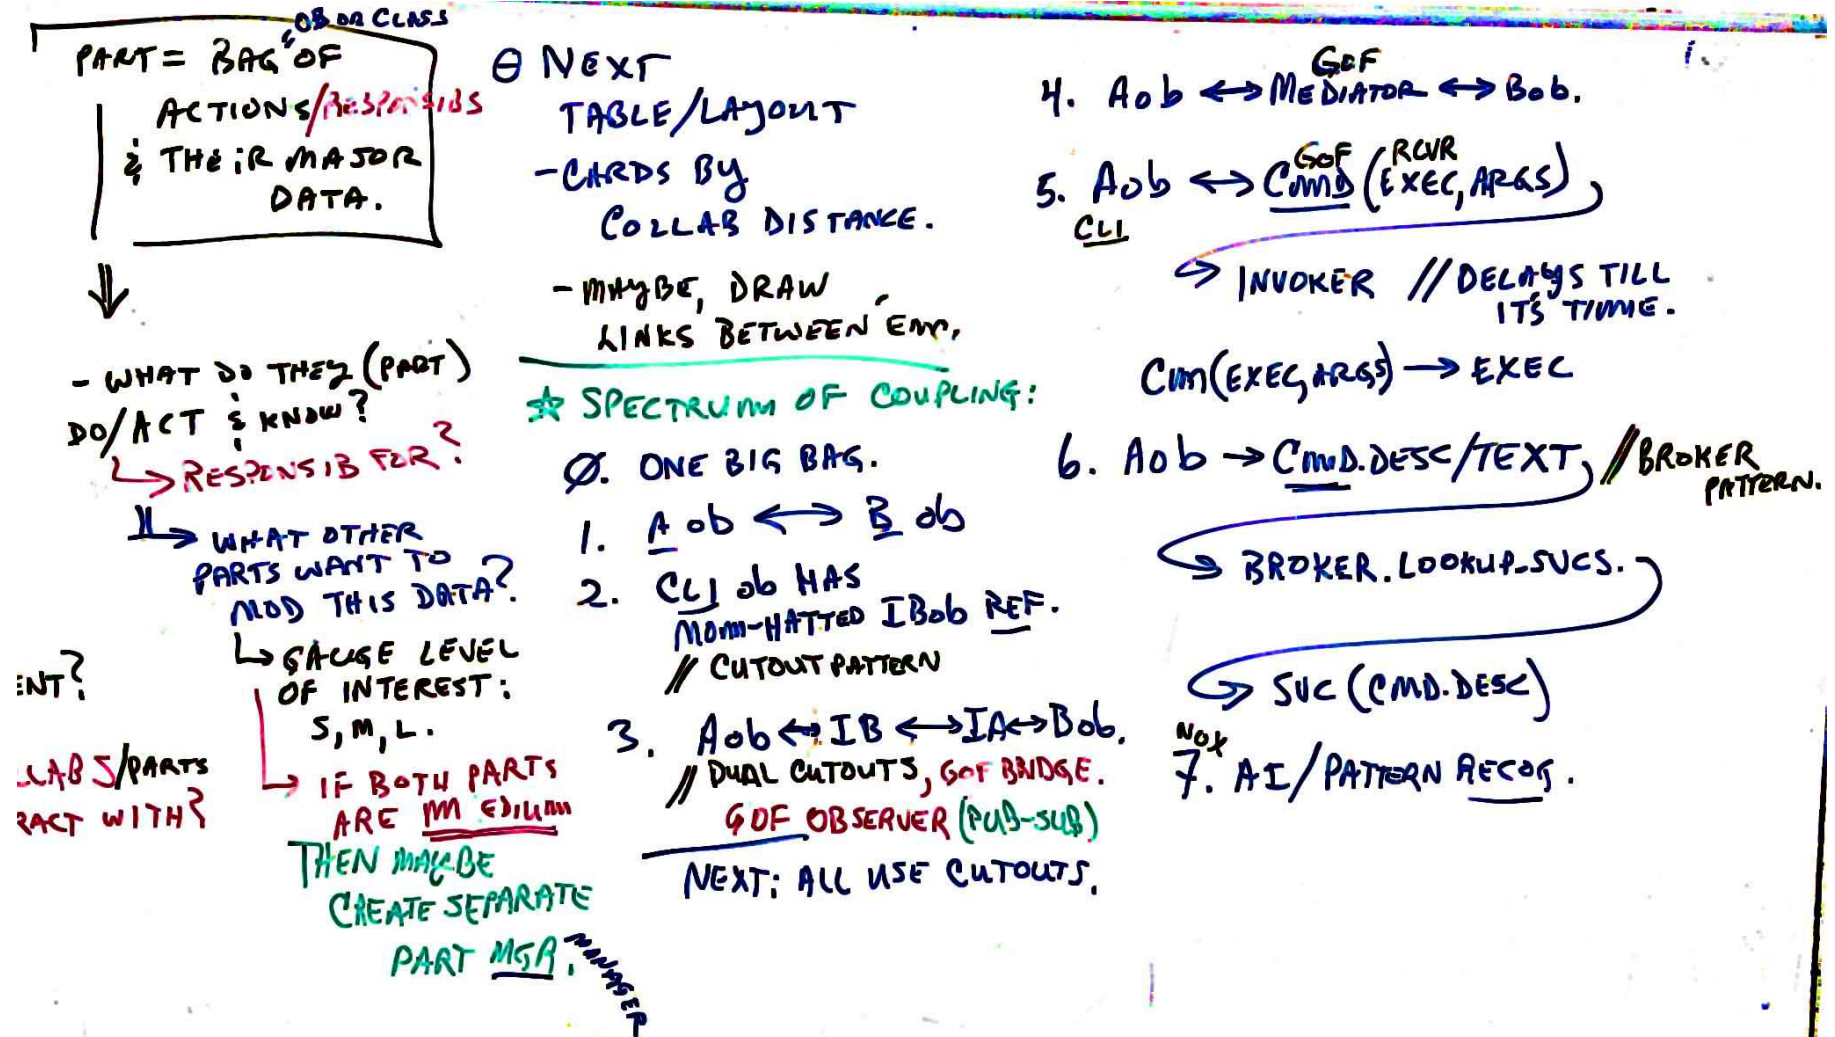 OB OR CLASS
PART = BAG OF
ACTIONS/RESPONSIBS
& THEIR MAJOR
DATA.
- WHAT DO THEY (PART)
DO/ACT & KNOW?
RESPONSIB FOR?
WHAT OTHER
PARTS WANT TO
MOD THIS DATA?
GAUGE LEVEL
OF INTEREST:
S, M, L.
IF BOTH PARTS
ARE MEDIUM
THEN MAYBE
CREATE SEPARATE
PART MGR.
MANAGER
ENT?
LLABS/PARTS
RACT WITH?
θ NEXT
TABLE/LAYOUT
- CARDS BY
COLLAB DISTANCE.
- MAYBE, DRAW
LINKS BETWEEN 'EM.
☆ SPECTRUM OF COUPLING:
Ø. ONE BIG BAG.
1. A ob ↔ B ob
2. CLI ob HAS
MOM-HATTED IBob REF.
// CUTOUT PATTERN
3. Aob ↔ IB ↔ IA ↔ Bob.
// DUAL CUTOUTS, GOF BRIDGE.
GOF OBSERVER (PUB-SUB)
NEXT: ALL USE CUTOUTS.
GOF
4. Aob ↔ MEDIATOR ↔ Bob.
GOF RCVR
5. Aob ↔ CMD (EXEC, ARGS)
CLI
→ INVOKER // DELAYS TILL
IT'S TIME.
CMD(EXEC, ARGS) → EXEC
6. Aob → CMD.DESC/TEXT, // BROKER
PATTERN.
→ BROKER.LOOKUP_SVCS.
→ SVC (CMD.DESC)
NOX
7. AI/PATTERN RECOG.